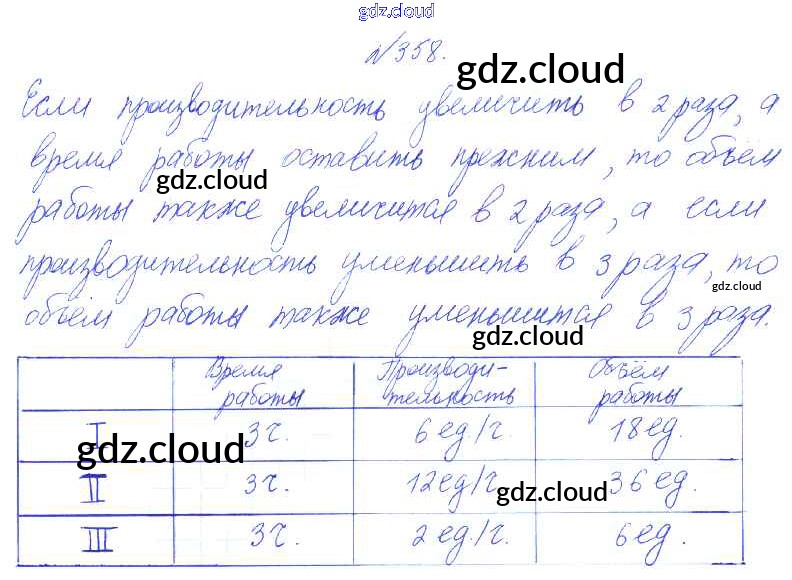 gdz.cloud
№358.
gdz.cloud
Если производительность увеличить в 2 раза, а
время работы оставить прежним, то объём
gdz.cloud
работы также увеличится в 2 раза, а если
производительность уменьшить в 3 раза, то
gdz.cloud
объём работы также уменьшится в 3 раза.
gdz.cloud
Время работы Производи-тельность Объём работы
I 3ч. 6 ед./ч. 18 ед.
gdz.cloud
II 3ч. 12 ед/ч. 36 ед.
gdz.cloud
III 3ч. 2 ед./ч. 6 ед.